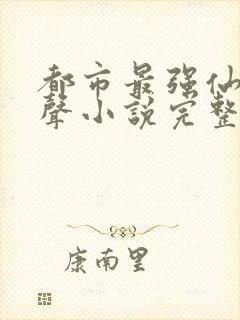 都市最强仙
聲小說完整
康南里